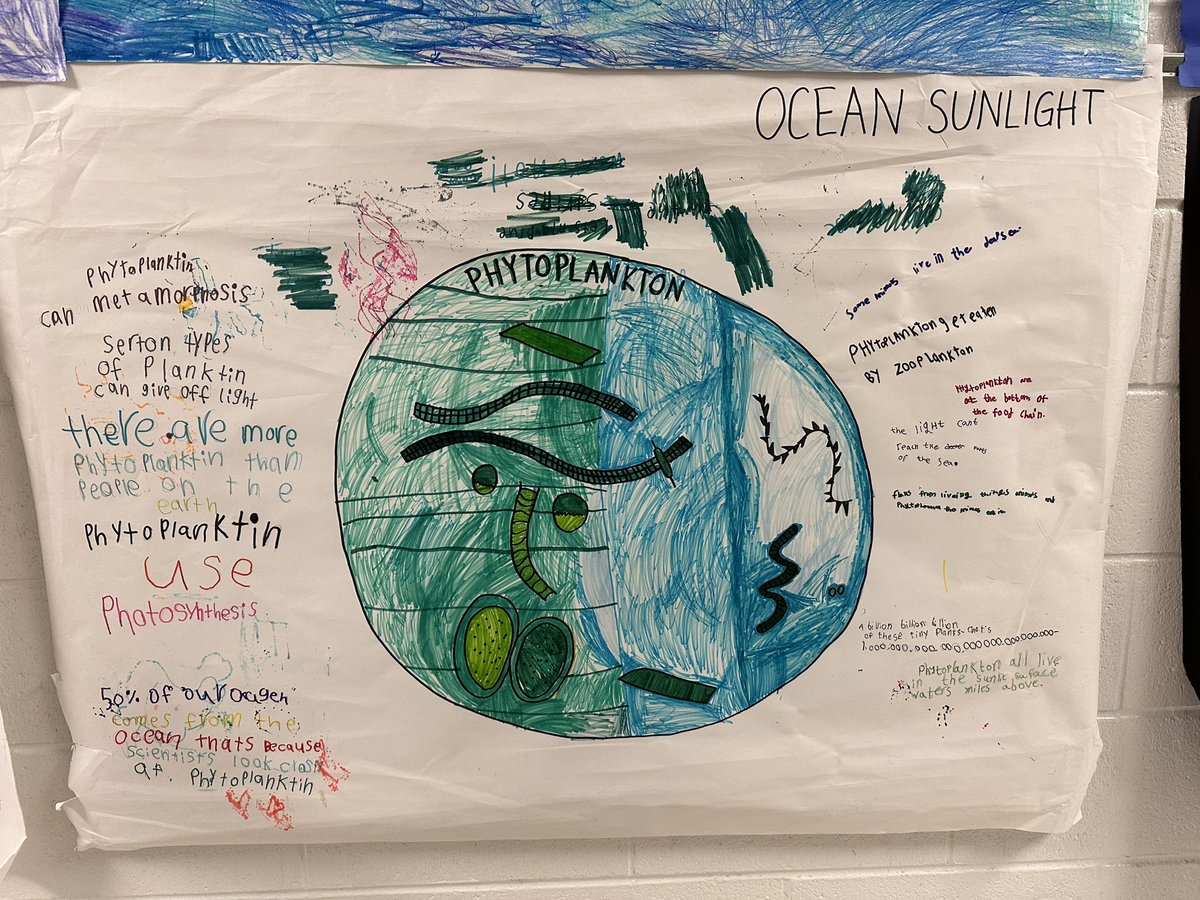 OCEAN SUNLIGHT
PHYTOPLANKTON
PhYtoPlanktin
can metamorphosis
serton tYPes
of Planktin
can give off light
there are more
PhYtoPlanktin than
PeoPle on the
earth
PhYtoPlanktin
use
Photosyhthesis
50% of our oxgen
comes from the
ocean thats Because
scientists look close
at. PhYtoPlanktin
some live in the
PHYtoPLANKTON get eaten
BY ZOOPLANKTON
PHytoplankton are
at the bottom of
the food chain.
the light cant
reach the parts
of the sea.
A billion billion billion
of these tiny Plants-that's
Phytoplankton all live
in the sunlit surface
waters miles above.